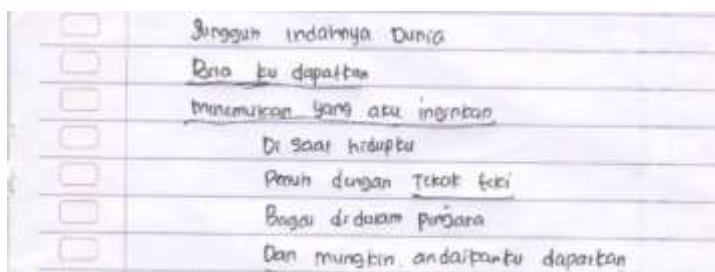 Sungguh indahnya Dunia
Bila ku dapatkan
menemukan yang aku inginkan
Di saat hidupku
Penuh dengan Tekok teki
Bagai di dalam penjara
Dan mungkin andaikanku dapatkan